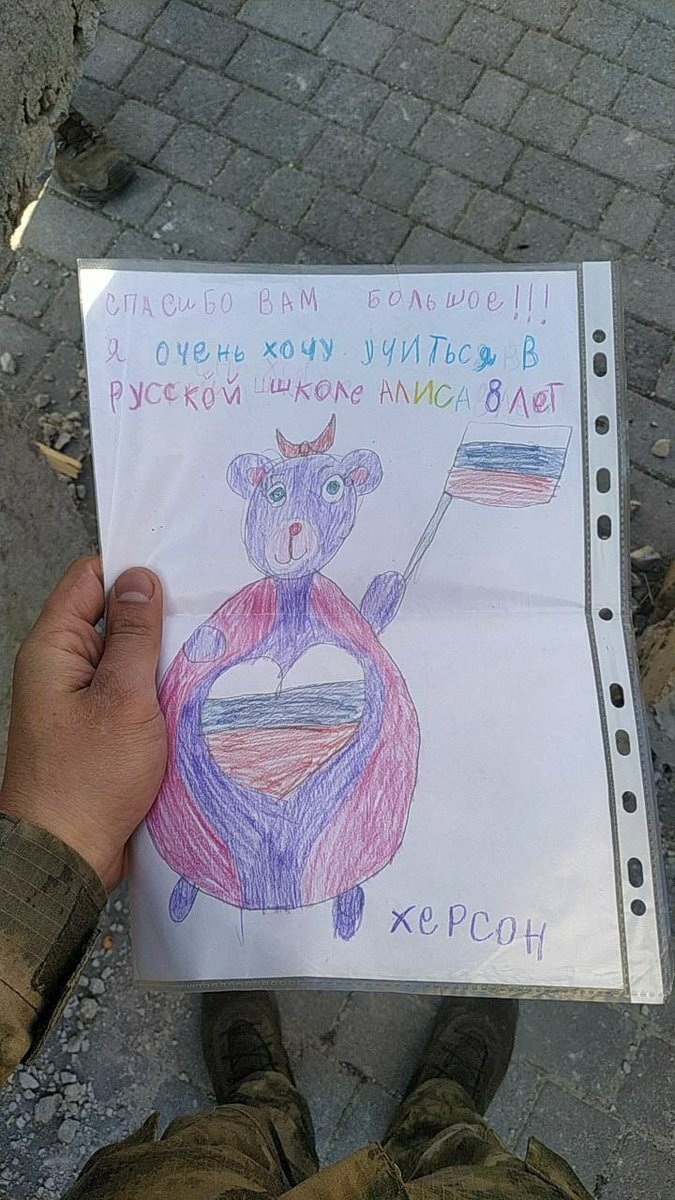 СПАСИБО ВАМ БОЛЬШОЕ!!!
Я ОЧЕНЬ ХОЧУ УЧИТЬСЯ В
РУССКОЙ ШКОЛЕ АЛИСА 8 ЛЕТ
ХЕРСОН